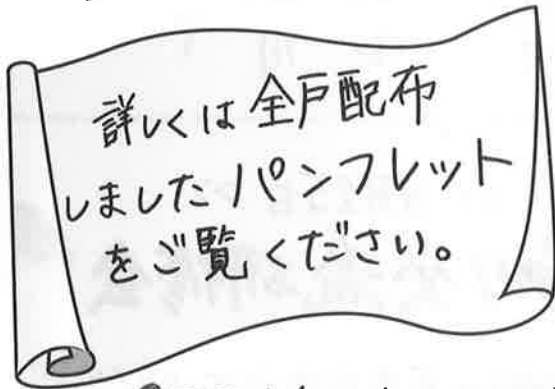 詳しくは全戸配布
しましたパンフレット
をご覧ください。